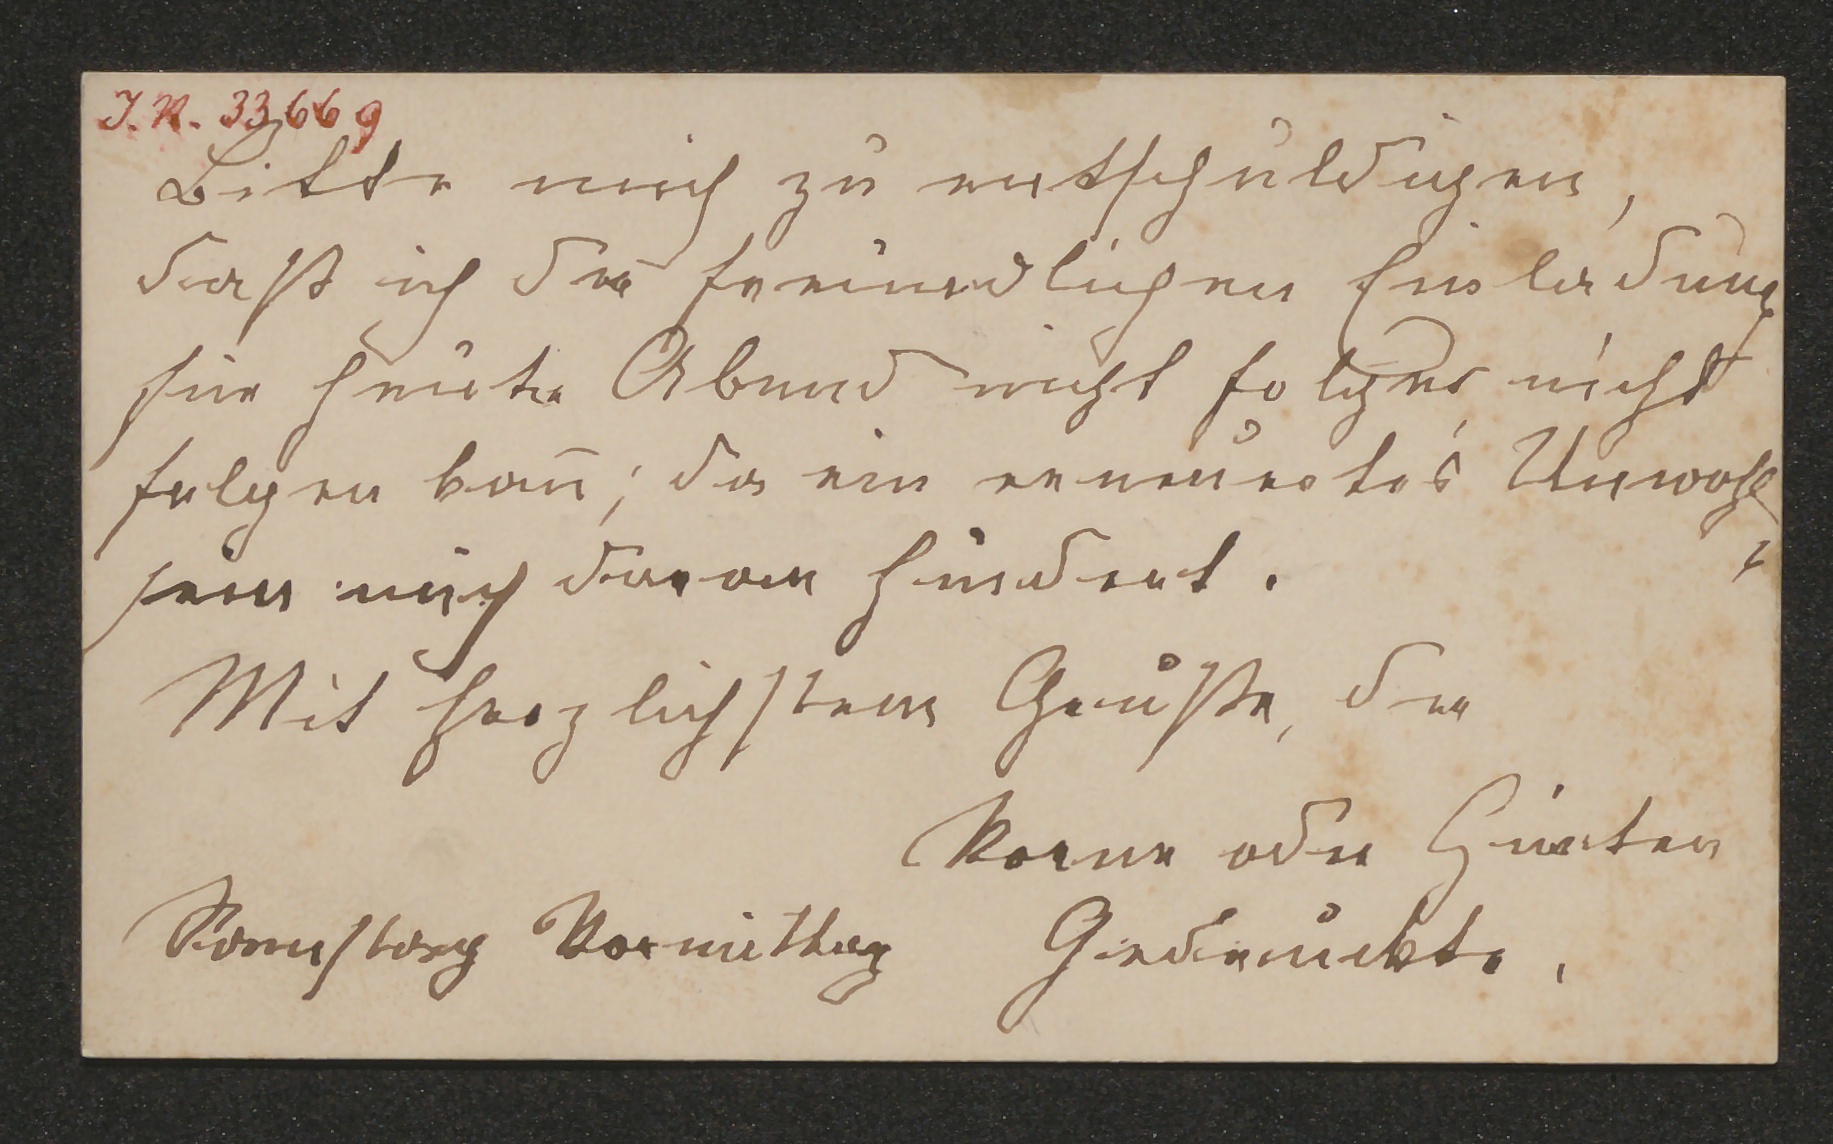 I.N. 33669
Bitte mich zu entschuldigen,
daß ich der freundlichen Einladung
für heute Abend nicht folgen nicht
folgen kan̄; da ein erneuertes Unwohl
sein mich daran hindert.
Mit herzlichstem Gruße, der
Vorne oder Hinten
Samstag Vormittag Gedruckte.